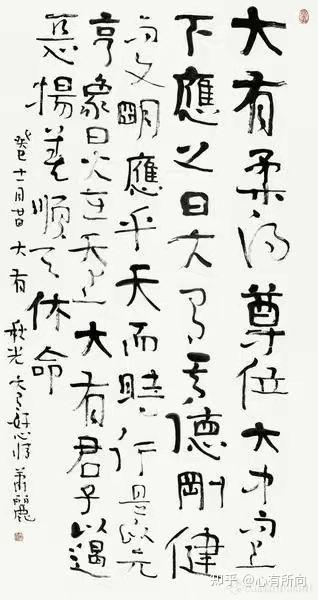 大有柔得尊位大中而上
下應之曰大有其德剛健
而文明應乎天而時行是以元
亨象曰火在天上大有君子以遏
惡揚善順天休命
癸巳十一月昔大有
知乎 @心有所向